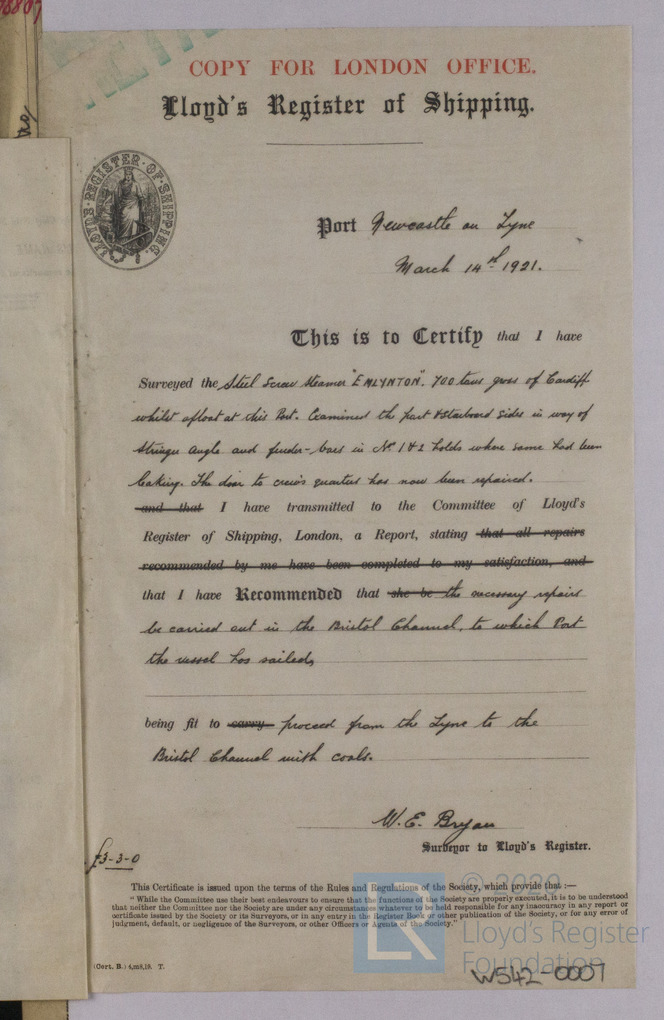 COPY FOR LONDON OFFICE.
Lloyd's Register of Shipping.
LLOYDS REGISTER OF SHIPPING
Port Newcastle on Tyne
March 14th 1921.
This is to Certify that I have
Surveyed the Steel Screw Steamer "EMLYNTON". 700 tons gross of Cardiff
whilst afloat at this Port. Examined the port & starboard sides in way of
stringer angle and fender-bars in No 1 & 2 holds where same had been
leaking. The door to crew's quarters has now been repaired.
and that I have transmitted to the Committee of Lloyd's
Register of Shipping, London, a Report, stating that all repairs
recommended by me have been completed to my satisfaction, and
that I have Recommended that she be the necessary repairs
be carried out in the Bristol Channel, to which Port
the vessel has sailed,
being fit to carry proceed from the Tyne to the
Bristol Channel with coals.
W. E. Bryan
Surveyor to Lloyd's Register.
£3-3-0
This Certificate is issued upon the terms of the Rules and Regulations of the Society, which provide that :—
"While the Committee use their best endeavours to ensure that the functions of the Society are properly executed, it is to be understood
that neither the Committee nor the Society are under any circumstances whatever to be held responsible for any inaccuracy in any report or
certificate issued by the Society or its Surveyors, or in any entry in the Register Book or other publication of the Society, or for any error of
judgment, default, or negligence of the Surveyors, or other Officers or Agents of the Society."
(Cert. B.) 4,m8,18. T.
© 2020
LR Lloyd's Register
Foundation
W542-0007